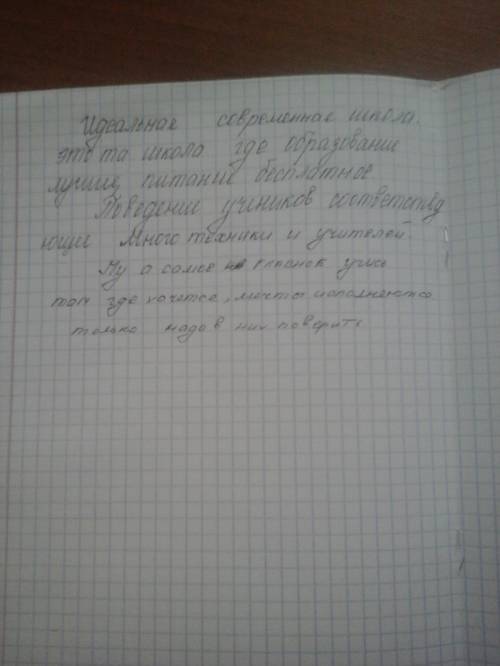 Идеальная современная школа.
это та школа где образование
лучше, питание бесплатное
Поведение учиников соответствую
ющие Много техники и учителей.
Ну а самое учись
там где хочется, мечты исполняются
только надо в них поверить